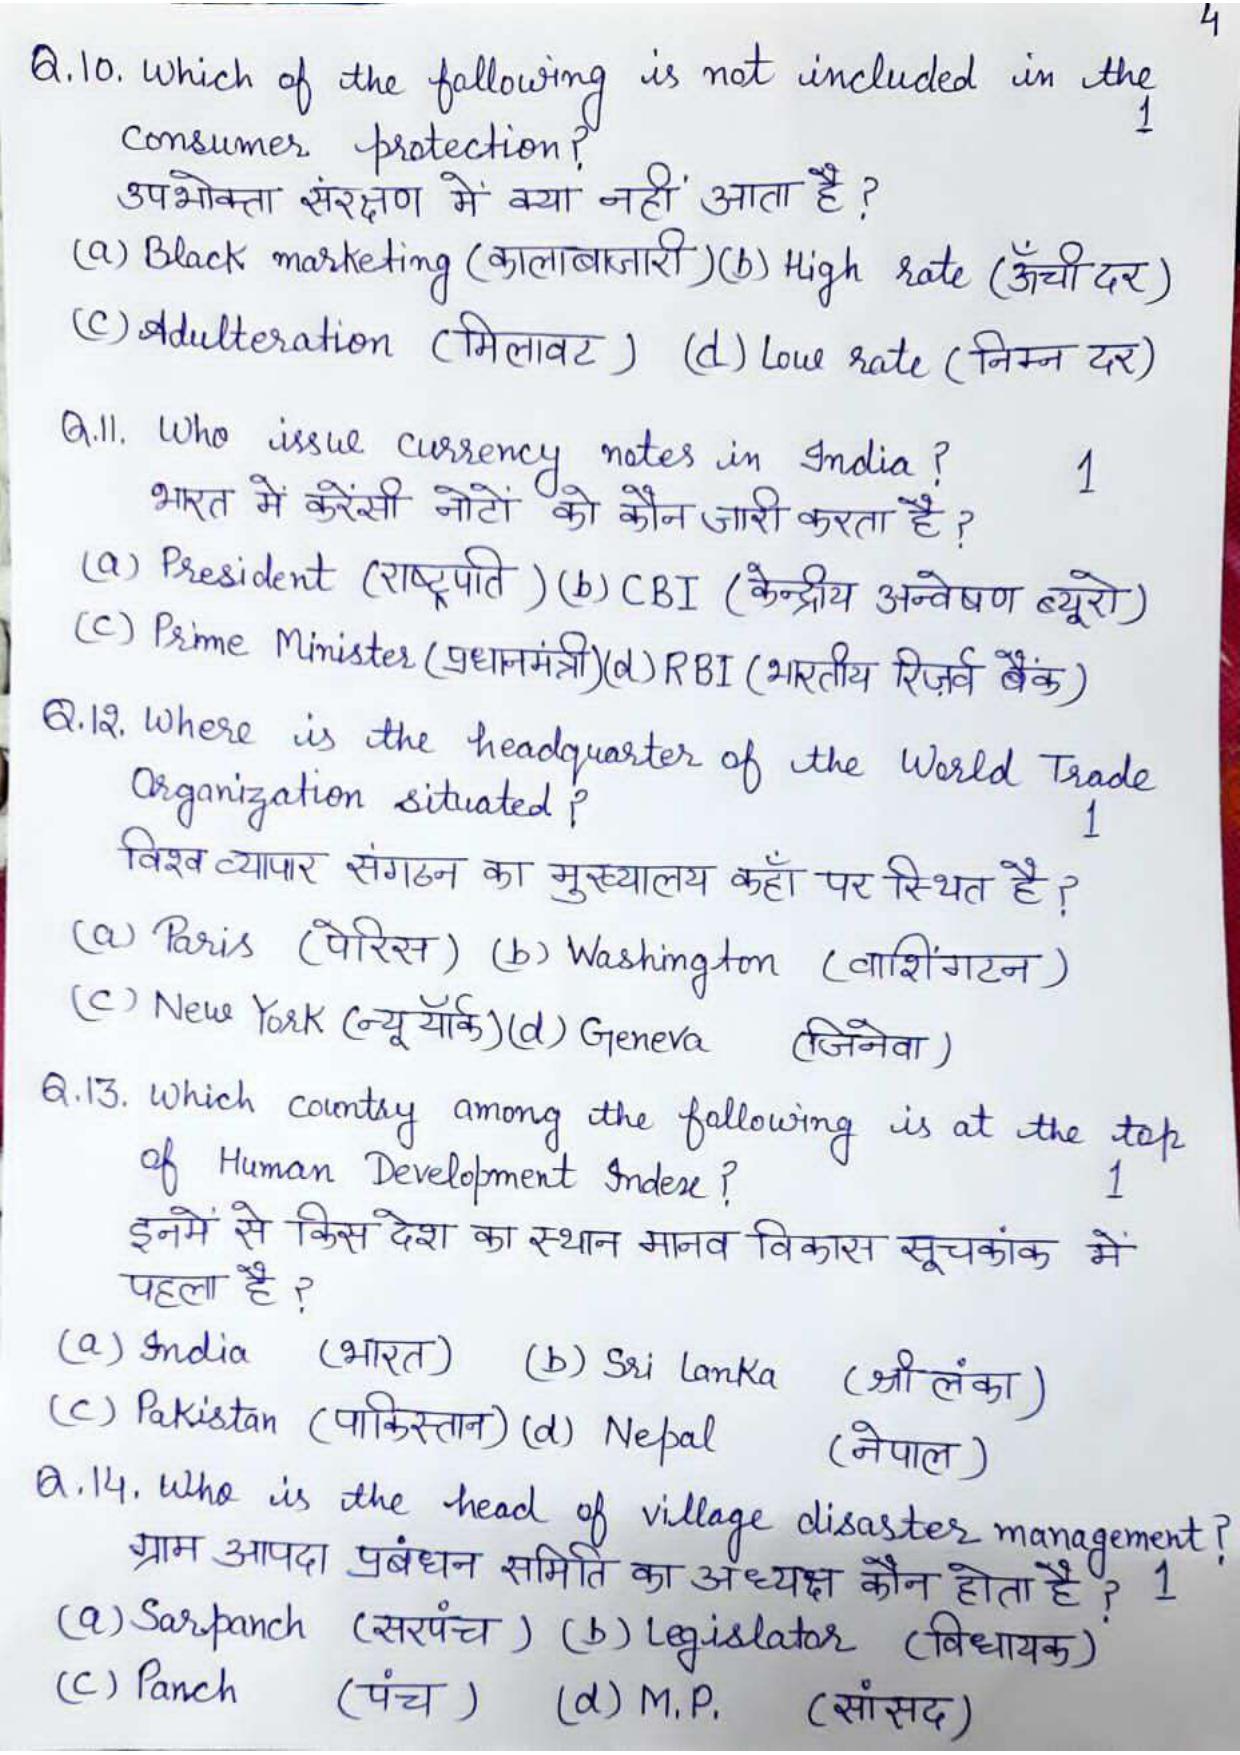 4
Q.10. Which of the following is not included in the
1
Consumer protection?
उपभोक्ता संरक्षण में क्या नहीं आता है?
(a) Black marketing (कालाबाजारी) (b) High rate (ऊँची दर)
(c) Adulteration (मिलावट) (d) Low rate (निम्न दर)
Q.11. Who issue currency notes in India? 1
भारत में करेंसी नोटों को कौन जारी करता है?
(a) President (राष्ट्रपति) (b) CBI (केन्द्रीय अन्वेषण ब्यूरो)
(c) Prime Minister (प्रधानमंत्री) (d) RBI (भारतीय रिज़र्व बैंक)
Q.12. Where is the headquarter of the World Trade
Organization situated? 1
विश्व व्यापार संगठन का मुख्यालय कहाँ पर स्थित है?
(a) Paris (पेरिस) (b) Washington (वाशिंगटन)
(c) New York (न्यू यॉर्क) (d) Geneva (जिनेवा)
Q.13. Which country among the following is at the top
of Human Development Index? 1
इनमें से किस देश का स्थान मानव विकास सूचकांक में
पहला है?
(a) India (भारत) (b) Sri Lanka (श्री लंका)
(c) Pakistan (पाकिस्तान) (d) Nepal (नेपाल)
Q.14. Who is the head of village disaster management?
ग्राम आपदा प्रबंधन समिति का अध्यक्ष कौन होता है? 1
(a) Sarpanch (सरपंच) (b) Legislator (विधायक)
(c) Panch (पंच) (d) M.P. (सांसद)